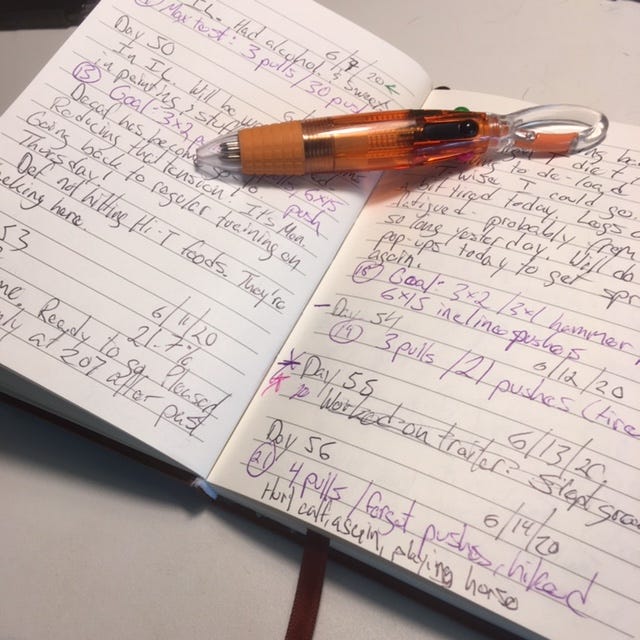 Had alcohol & sweets
Max test: 3 pulls / 30 pushes
6/7/20
Day 50
In IL. Will be
in painting & stuff
(13) Goal: 3x2
Decal has become
Reducing that tension! It's Mon,
6x15
push
Going back to regular training on
Thursday!
Def not hitting Hi-T foods. They're
here.
53
6/11/20
21.7%
me. Ready to go. Pleased
only at 20% after past
I die t
to de-load
wise I could go
a bit tired today. Legs a
fatigued - probably from
so long yesterday. Will do
pop-ups today to get spr
again.
(18) Goal: 3x2 / 3x1 hammer
6x15 incline pushups
Day 54
6/12/20
(19) 3 pulls / 21 pushes (tire
Day 55
6/13/20
20 Worked on trailer. Slept
Day 56
6/14/20
(21) 4 pulls / forgot pushes, hiked
Hurt calf again, playing horse